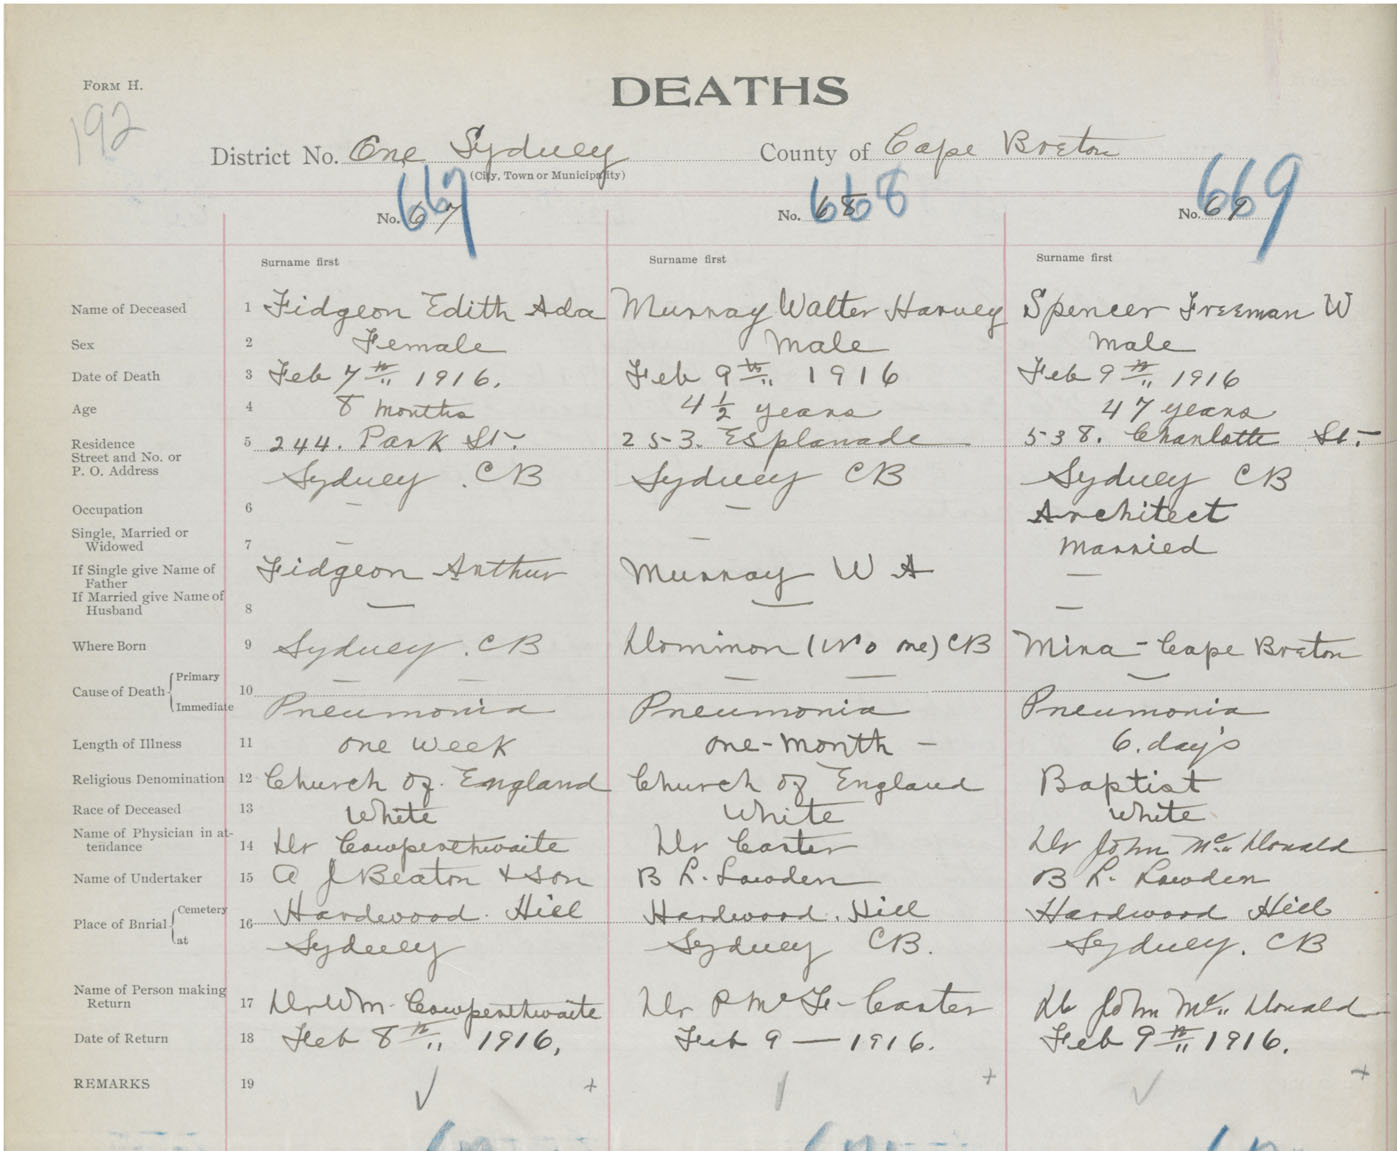 FORM H.
DEATHS
192
District No. One Sydney County of Cape Breton
(City, Town or Municipality)
667 668 669
No. 67 No. 68 No. 69
Surname first Surname first Surname first
Name of Deceased 1 Fidgeon Edith Ada Murray Walter Harvey Spencer Freeman W
Sex 2 Female Male Male
Date of Death 3 Feb 7th 1916. Feb 9th 1916 Feb 9th 1916
Age 4 8 months 4 1/2 years 47 years
Residence 5 244. Park St. 253. Esplanade 538. Charlotte St.
Street and No. or
P. O. Address Sydney . CB Sydney CB Sydney CB
Occupation 6 – – Architect
Single, Married or
Widowed 7 – – Married
If Single give Name of
Father Fidgeon Arthur Murray W A –
If Married give Name of
Husband 8 — — –
Where Born 9 Sydney. CB Dominon (No one) CB Mira - Cape Breton
Cause of Death Primary 10 – – – – –
Immediate Pneumonia Pneumonia Pneumonia
Length of Illness 11 one week one-month – 6. day's
Religious Denomination 12 Church of England Church of England Baptist
Race of Deceased 13 White White White
Name of Physician in at-
tendance 14 Dr Cowperthwaite Dr Carter Dr John McDonald
Name of Undertaker 15 A J Beaton + Son B L. Lowden B L. Lowden
Place of Bnrial Cemetery 16 Hardwood. Hill Hardwood. Hill Hardwood Hill
at Sydney Sydney CB. Sydney. CB
Name of Person making
Return 17 Dr Wm. Cowperthwaite Dr P McF- Carter Dr John McDonald
Date of Return 18 Feb 8th 1916, Feb 9 — 1916. Feb 9th 1916.
REMARKS 19 ✓ + / + ✓ +